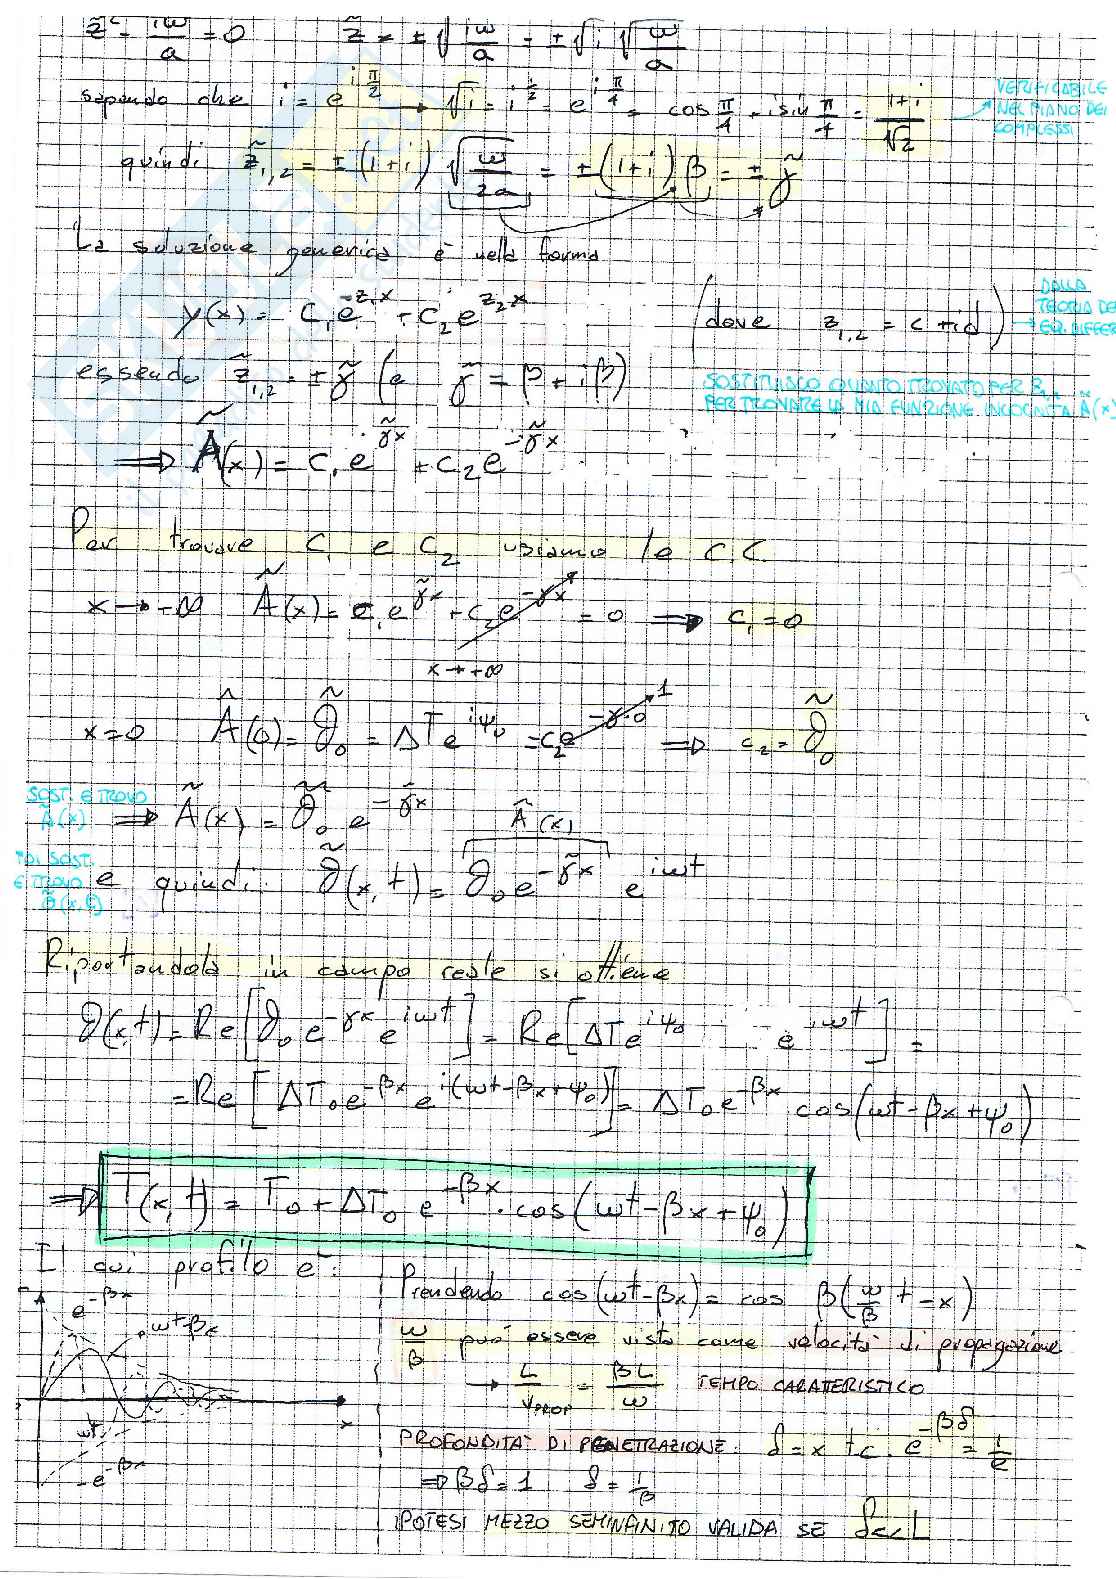 z̃² - iω/a = 0    z̃ = ±√(iω/a) = ±√i √(ω/a)
sapendo che i = e^{iπ/2} → √i = i^{1/2} = e^{iπ/4} = cos π/4 + i sin π/4 = (1+i)/√2
VERIFICABILE
NEL PIANO DEI
COMPLESSI
quindi z̃₁,₂ = ±(1+i) √(ω/2a) = ±(1+i)β = ±γ̃
La soluzione generica è nella forma
y(x) = c₁e^{-z₁x} + c₂e^{z₂x}    (dove z₁,₂ = c+id)
DALLA
TEORIA DE
EQ. DIFFER
essendo z̃₁,₂ = ±γ̃ (e γ̃ = β + iβ)
SOSTITUISCO QUANTO TROVATO PER
PER TROVARE LA MIA FUNZIONE INCOGNITA Ã(x)
⟹ Ã(x) = c₁e^{γ̃x} + c₂e^{-γ̃x}
Per trovare c₁ e c₂ usiamo le C.C.
x→-∞    Ã(x) = c₁e^{γ̃x} + c₂e^{-γx} = 0 ⟹ c₁=0
x→+∞
x=0    Ã(0) = θ̃₀ = ΔT e^{iψ₀} = c₂e^{-γ·0} 1 ⟹ c₂ = θ̃₀
SOST. E TROVO
Ã(x)
⟹ Ã(x) = θ̃₀ e^{-γ̃x}    Ã(x)
POI SOST.
E TROVO
θ̃(x,t)
e quindi θ̃(x,t) = θ₀e^{-γ̃x} e^{iωt}
Riportandola in campo reale si ottiene
θ(x,t) = Re[θ₀ e^{-γx} e^{iωt}] = Re[ΔT e^{iψ₀} e^{iωt}] =
= Re[ΔT₀e^{-βx} e^{i(ωt-βx+ψ₀)}] = ΔT₀e^{-βx} cos(ωt-βx+ψ₀)
⟹ T(x,t) = T₀ + ΔT₀ e^{-βx} · cos(ωt-βx+ψ₀)
Il cui profilo è:
e^{-βx}
ωt-βx
x
ωt
-e^{-βx}
Prendendo cos(ωt-βx) = cos β(ω/β t - x)
ω/β può essere vista come velocità di propagazione
→ L/v_PROP = βL/ω    TEMPO CARATTERISTICO
PROFONDITA' DI PENETRAZIONE: δ=x t.c. e^{-βδ} = 1/e
⟹ βδ=1    δ=1/β
IPOTESI MEZZO SEMINFINITO VALIDA SE δ<<L